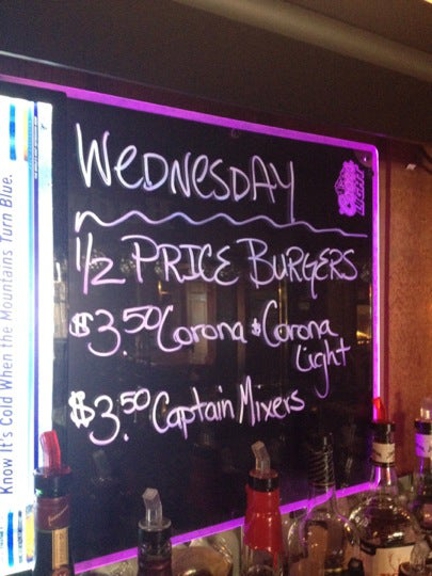 WEDNESDAY
1/2 PRICE BURGERS
$3.50 Corona & Corona
Light
$3.50 Captain Mixers
Know It's Cold When the Mountains Turn Blue.